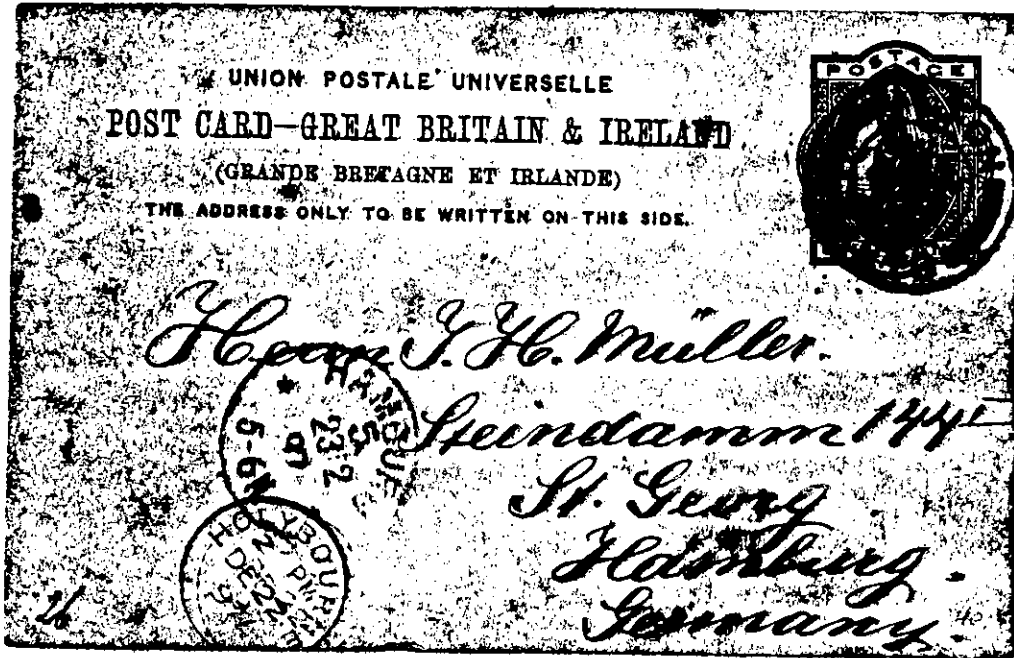 UNION POSTALE UNIVERSELLE
POST CARD—GREAT BRITAIN & IRELAND
(GRANDE BRETAGNE ET IRLANDE)
THE ADDRESS ONLY TO BE WRITTEN ON THIS SIDE.
POSTAGE
Herrn J. H. Müller.
Steindamm 144
St. Georg
Hamburg.
Germany.
HAMBURG
5
23 12
97
5-6N
HOLYBOURNE
PM
DE 22
97
26